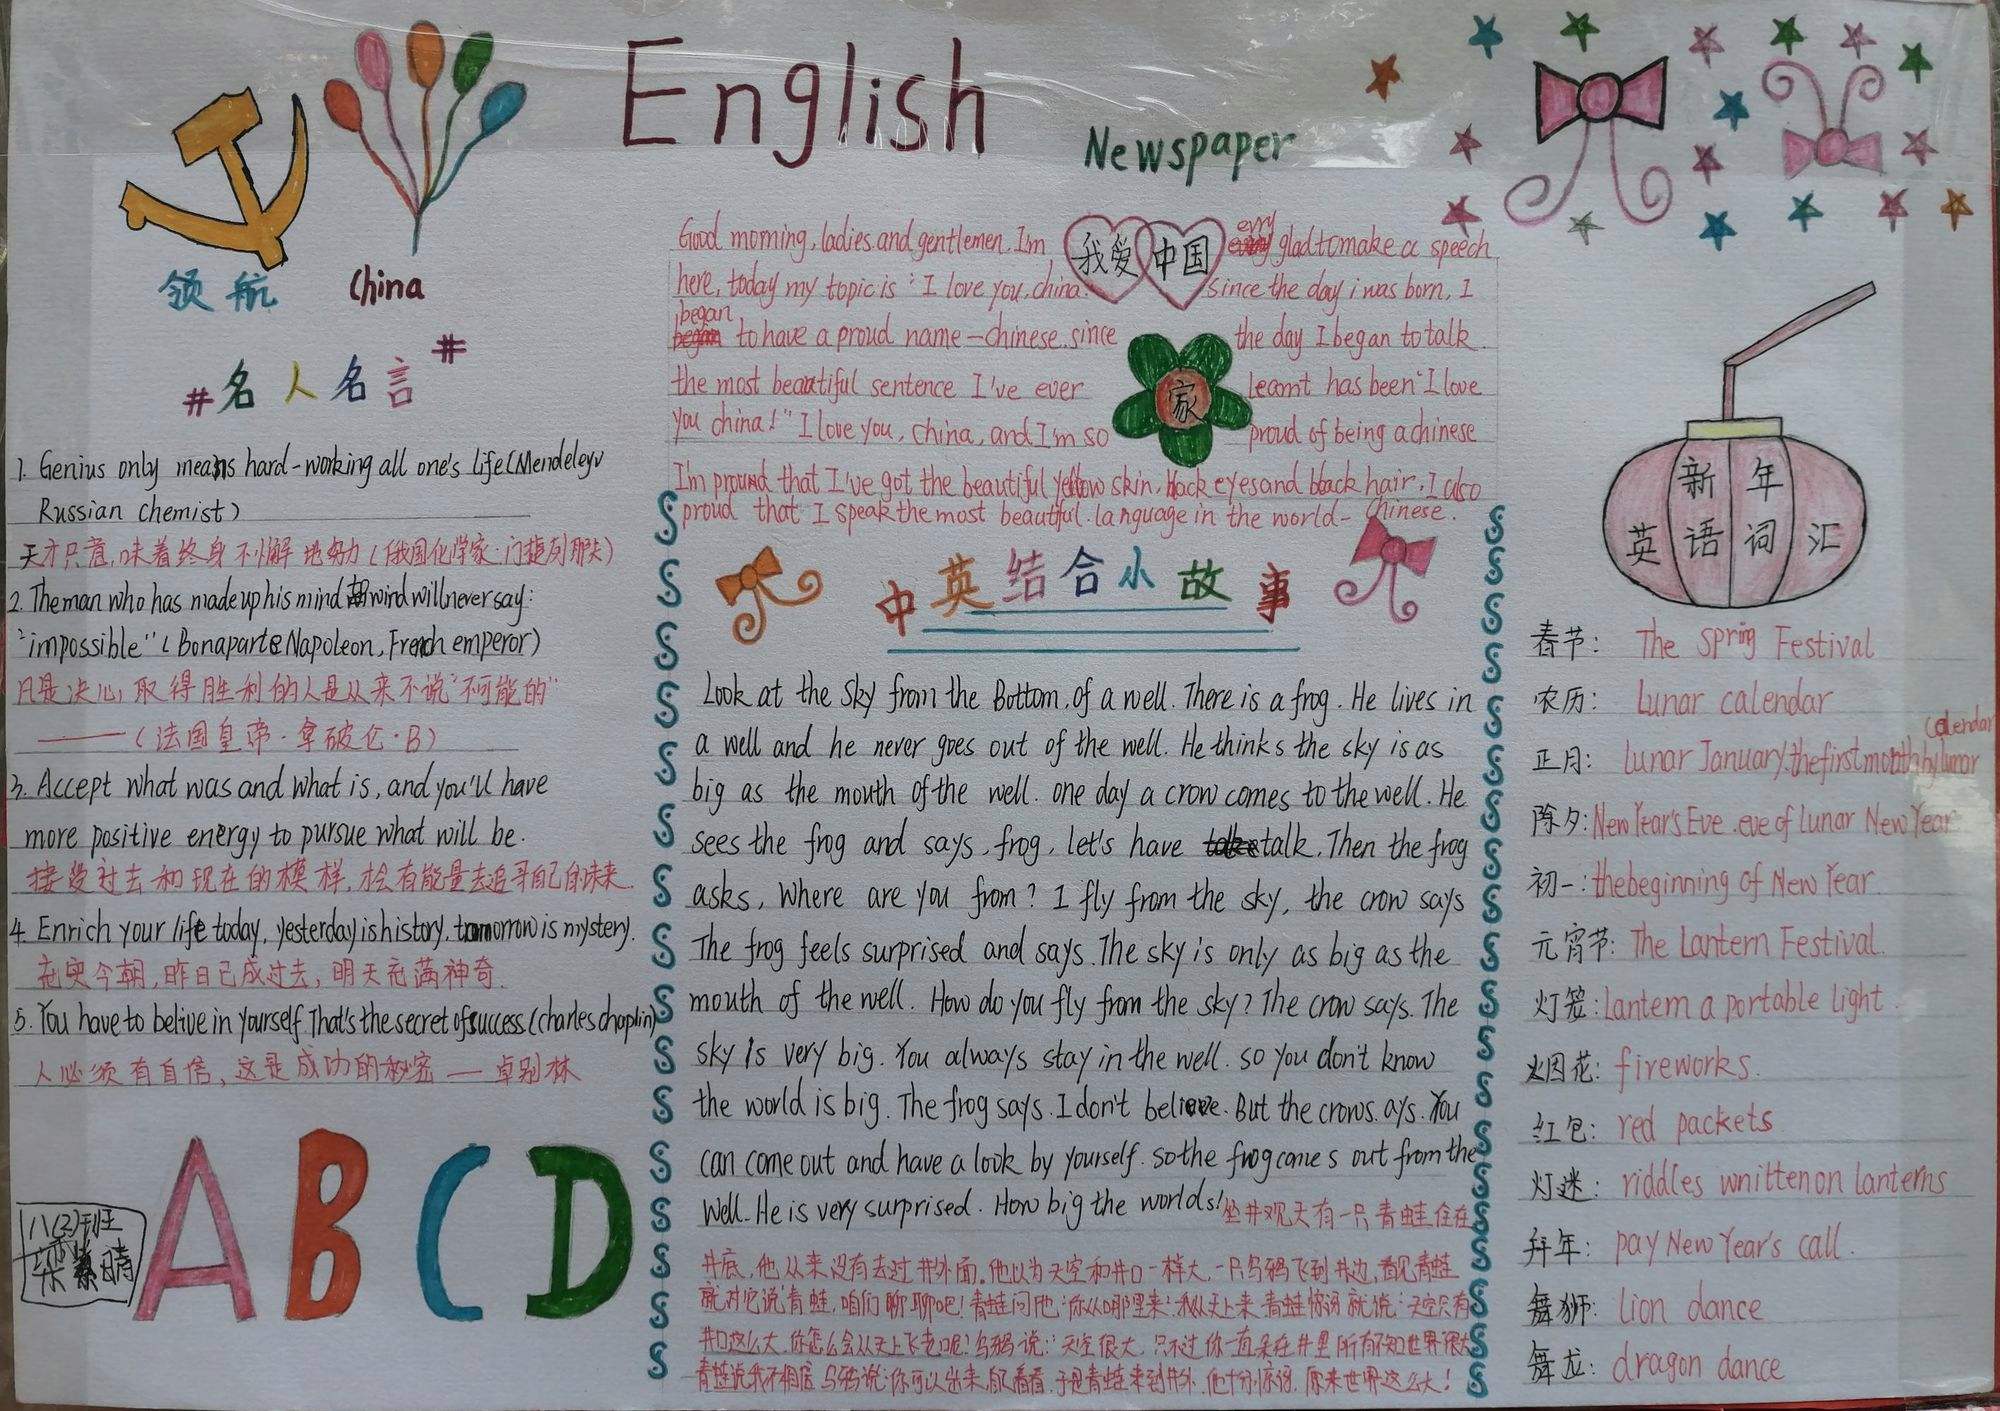 English
Newspaper
领航 China
#名人名言#
1. Genius only means hard-working all one's life (Mendeleyv
Russian chemist)
天才只意味着终身不懈地努力(俄国化学家·门捷列耶夫)
2. The man who has made up his mind wind will never say:
"impossible" (Bonaparte Napoleon, French emperor)
凡是决心取得胜利的人是从来不说"不可能的"
——(法国皇帝·拿破仑·B)
3. Accept what was and what is, and you'll have
more positive energy to pursue what will be.
接受过去和现在的模样,才会有能量去追寻自己的未来.
4. Enrich your life today, yesterday is history, tomorrow is mystery.
充实今朝,昨日已成过去,明天充满神奇.
5. You have to belive in yourself That's the secret of success (charles chaplin)
人必须有自信,这是成功的秘密 — 卓别林
ABCD
八(3)班
Good morning, ladies and gentlemen, I'm 我爱 中国 evry glad to make a speech
here, today my topic is "I love you, china. since the day i was born, I
began to have a proud name - chinese. since the day I began to talk.
the most beautiful sentence I've ever 家 learnt has been "I love
you china!" I love you, china, and I'm so proud of being a chinese
I'm pround that I've got the beautiful yellow skin, black eyes and black hair, I also
proud that I speak the most beautful. language in the world- Chinese.
中英结合小故事
Look at the sky from the Bottom, of a well. There is a frog. He lives in
a well and he never goes out of the well. He thinks the sky is as
big as the mouth of the well. one day a crow comes to the well. He
sees the frog and says, frog, let's have talk. Then the frog
asks, Where are you from? I fly from the sky, the crow says
The frog feels surprised and says. The sky is only as big as the
mouth of the well. How do you fly from the sky? The crow says. The
sky is very big. You always stay in the well. so you don't know
the world is big. The frog says. I don't believe. But the crows. ays. You
can come out and have a look by yourself. so the frog come s out from the
well. He is very surprised. How big the worlds! 坐井观天有一只青蛙住在
井底,他从来没有去过井外面。他以为天空和井口一样大,一只乌鸦飞到井边,看见青蛙
就对它说青蛙,咱们聊聊吧!青蛙问他:你从哪里来?我从天上来 青蛙惊讶就说:天空只有
井口这么大,你怎么会从天上飞来呢!乌鸦说:"天空很大,只不过你一直呆在井里所有不知世界很大
青蛙说我不相信 乌鸦说:你可以出来,自己看看,于是青蛙来到井外,他十分惊讶,原来世界这么大!
新年
英语词汇
春节: The Spring Festival
农历: Lunar calendar
正月: lunar January, the first month by lunar calendar
除夕: New Year's Eve. eve of lunar New Year
初一: the beginning of New Year.
元宵节: The Lantern Festival.
灯笼: lantern a portable light.
烟花: fireworks.
红包: red packets.
灯迷: riddles wnitten on lanterns
拜年: pay New Year's call.
舞狮: lion dance
舞龙: dragon dance